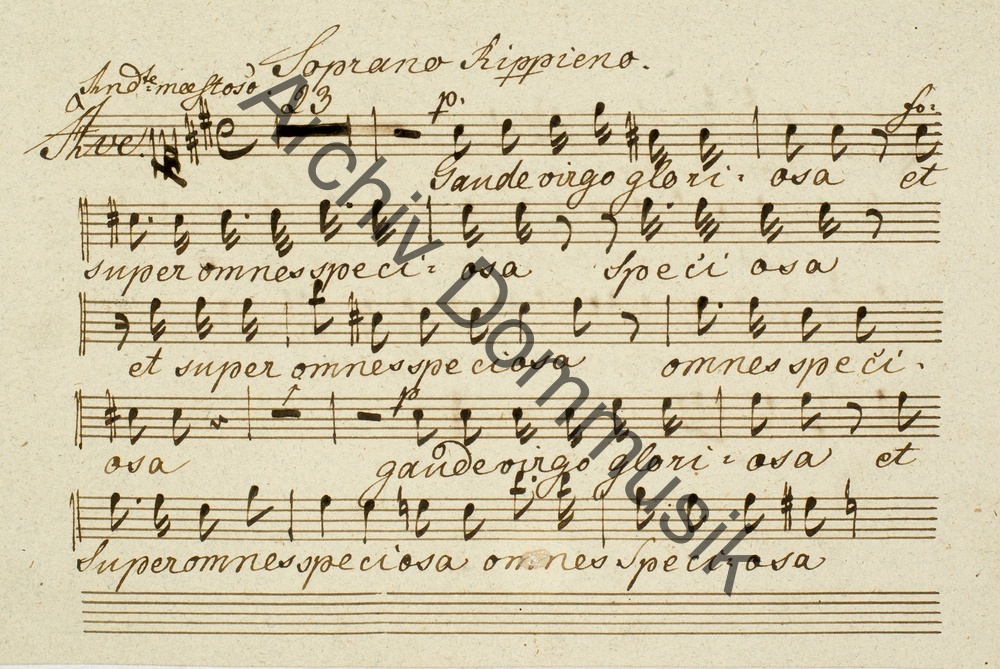 Soprano Rippieno.
Andte. maestoso. 23 p. fo:
Ave.
Gaude virgo glori: osa et
super omnes speci: osa speci osa
et super omnes speciosa omnes speci.
1 p
osa gaude virgo glori: osa et
Super omnes speciosa omnes speci: osa
Archiv Dommusik